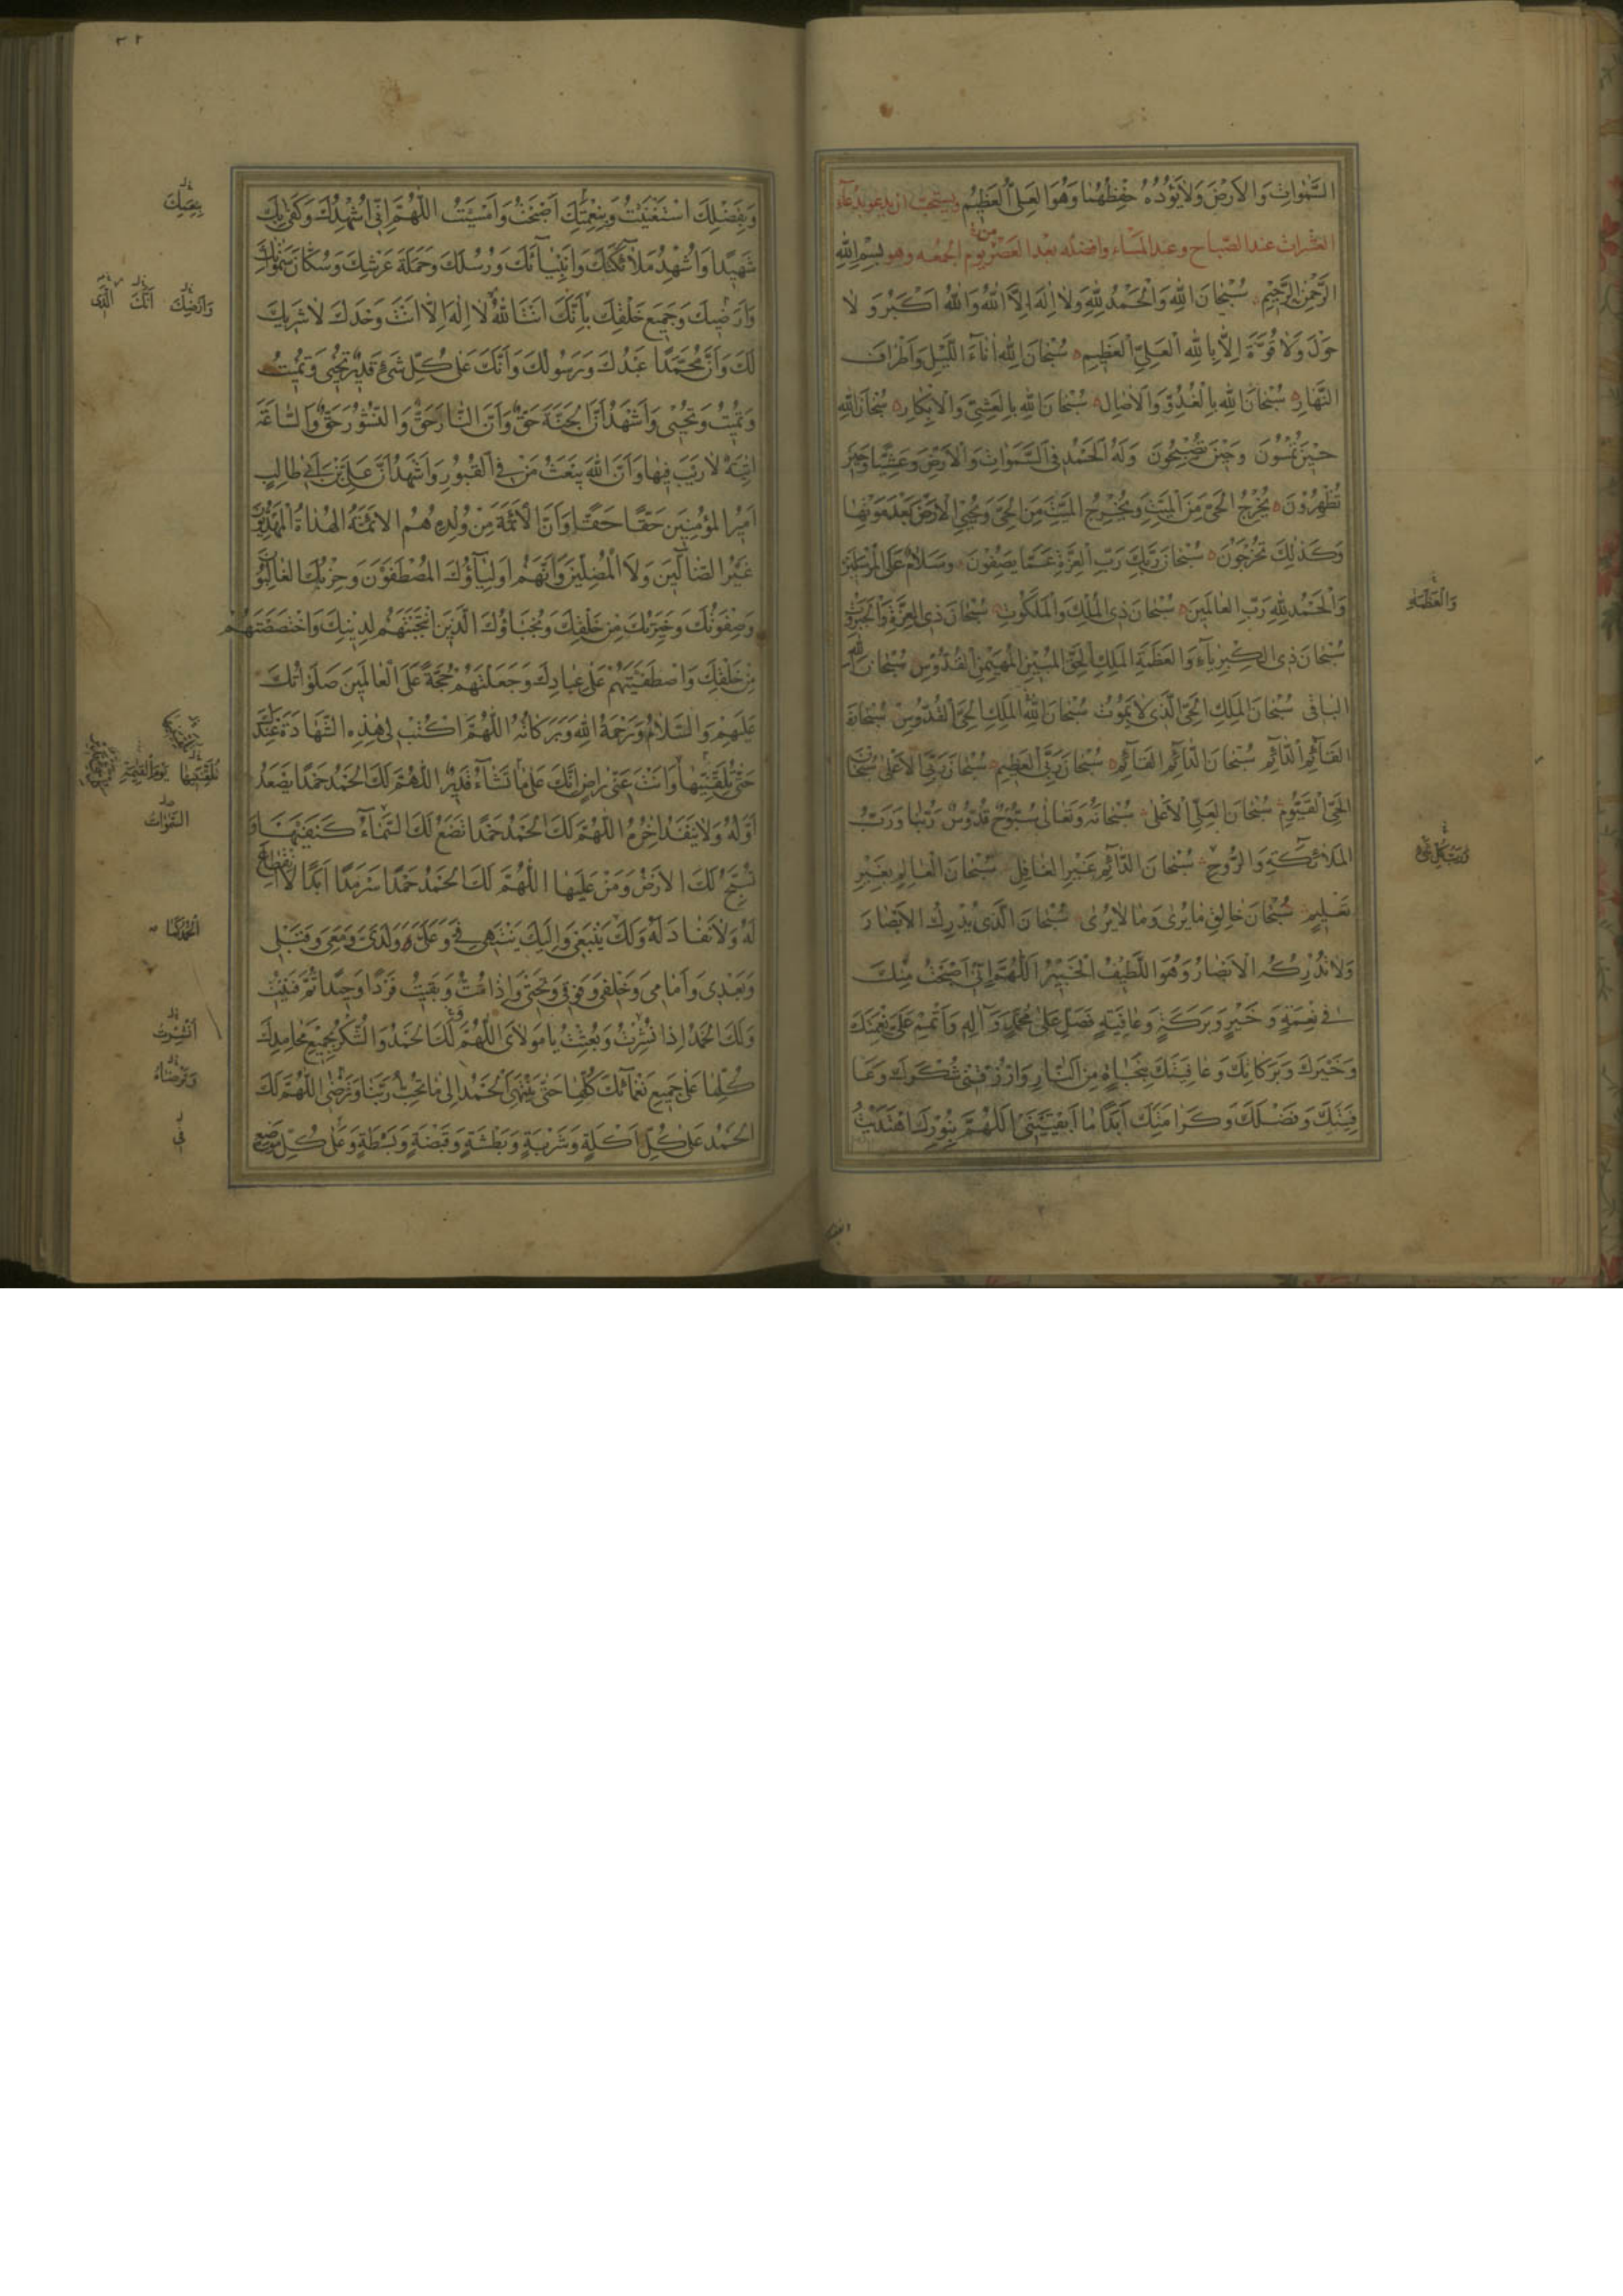 السَّمٰواتِ وَالاَرْضَ وَلاٰيَؤُدُهُ حِفْظُهُمٰا وَهُوَ العَلِىُّ العَظِيمُ ويستحبّ ان يدعو بدعآء
العشرات عند الصّباح وعند المسٰاء وافضله بعد العصر من يوم الجمعه وهو بِسْمِ اللهِ
الرَّحْمٰنِ الرَّحِيْمِ سُبْحٰانَ اللهِ وَالْحَمْدُ لِلّٰهِ وَلاٰ اِلٰهَ اِلاَّ اللهُ وَاللهُ اَكْبَرُ وَ لاٰ
حَوْلَ وَلاٰ قُوَّةَ اِلاّٰ بِاللهِ الْعَلِىِّ الْعَظِيمِ سُبْحٰانَ اللهِ اٰنٰاءَ اللَّيْلِ وَاَطْرٰافَ
النَّهٰارِ سُبْحٰانَ اللهِ بِالْغُدُوِّ وَالاٰصٰالِ سُبْحٰانَ اللهِ بِالْعَشِيِّ وَالاِبْكٰارِ سُبْحٰانَ اللهِ
حِيْنَ تُمْسُونَ وَحِيْنَ تُصْبِحُونَ وَلَهُ الْحَمْدُ فِي السَّمٰوٰاتِ وَالاَرْضِ وَعَشِيًّا وَحِيْنَ
تُظْهِرُوْنَ يُخْرِجُ الْحَىَّ مِنَ الْمَيِّتِ وَيُخْرِجُ المَيِّتَ مِنَ الْحَىِّ وَيُحْيِى الاَرْضَ بَعْدَ مَوْتِهٰا
وَكَذٰلِكَ تُخْرَجُوْنَ سُبْحٰانَ رَبِّكَ رَبِّ الْعِزَّةِ عَمّٰا يَصِفُوْنَ وَسَلاٰمٌ عَلَى الْمُرْسَلِيْنَ
وَالْحَمْدُ لِلّٰهِ رَبِّ العٰالَمِيْنَ سُبْحٰانَ ذِي الْمُلْكِ وَالْمَلَكُوتِ سُبْحٰانَ ذِي العِزَّةِ وَالْجَبَرُوْتِ
وَالْعَظَمَةِ
سُبْحٰانَ ذِي الكِبْرِيٰآءِ وَالعَظَمَةِ المَلِكِ الْحَقِّ المُبِيْنِ المُهَيْمِنِ القُدُّوْسِ سُبْحٰانَ اللهِ
البٰاقى سُبْحٰانَ المَلِكِ الحَىِّ الَّذِي لاٰ يَمُوْتُ سُبْحٰانَ اللهِ المَلِكِ الحَىِّ القُدُّوْسِ سُبْحٰانَ
القٰآئِمِ الدّٰآئِمِ سُبْحٰانَ الدّٰآئِمِ القٰآئِمِ سُبْحٰانَ رَبِّىَ الْعَظِيْمِ سُبْحٰانَ رَبِّىَ الاَعْلىٰ سُبْحٰانَ
الحَىِّ القَيُّوْمِ سُبْحٰانَ العَلِىِّ الاَعْلىٰ سُبْحٰانَهُ وَتَعٰالىٰ سُبُّوْحٌ قُدُّوْسٌ رَبُّنٰا وَرَبُّ
المَلاٰئِكَةِ وَالرُّوْحِ سُبْحٰانَ الدّٰآئِمِ غَيْرِ الغٰافِلِ سُبْحٰانَ الْعٰالِمِ بِغَيْرِ
تَعْلِيمٍ سُبْحٰانَ خٰالِقِ مٰا يُرىٰ وَمٰا لاٰ يُرىٰ سُبْحٰانَ الَّذِي يُدْرِكُ الاَبْصٰارَ
وَلاٰ تُدْرِكُهُ الاَبْصٰارُ وَهُوَ اللَّطِيْفُ الْخَبِيْرُ اَللّٰهُمَّ اِنِّىْ اَصْبَحْتُ مِنْكَ
فِي نِعْمَةٍ وَ خَيْرٍ وَبَرَكَةٍ وَعٰافِيَةٍ فَصَلِّ عَلىٰ مُحَمَّدٍ وَ آلِهِ وَاَتْمِمْ عَلَىَّ نِعْمَتَكَ
وَخَيْرَكَ وَبَرَكٰاتِكَ وَعٰافِيَتَكَ بِنَجٰاةٍ مِنَ النّٰارِ وَارْزُقْنِى شُكْرَكَ وَعٰا
فِيَتَكَ وَفَضْلَكَ وَكَرٰامَتَكَ اَبَدًا مٰا اَبْقَيْتَنِىْ اَللّٰهُمَّ بِنُوْرِكَ اهْتَدَيْتُ
٣٢
وَبِفَضْلِكَ اسْتَغْنَيْتُ وَبِنِعْمَتِكَ اَصْبَحْتُ وَاَمْسَيْتُ اللّٰهُمَّ اِنّى اُشْهِدُكَ وَكَفىٰ بِكَ
شَهِيْدًا وَاُشْهِدُ مَلاٰئِكَتَكَ وَاَنْبِيٰآئَكَ وَرُسُلَكَ وَحَمَلَةَ عَرْشِكَ وَسُكّٰانَ سَمٰوٰاتِكَ
وَاَرْضِكَ اَنَّكَ الَّذى
وَاَرَضِيكَ وَجَمِيْعَ خَلْقِكَ بِاَنَّكَ اَنْتَ اللهُ لاٰ اِلٰهَ اِلاّٰ اَنْتَ وَحْدَكَ لاٰ شَرِيْكَ
لَكَ وَاَنَّ مُحَمَّدًا عَبْدُكَ وَرَسُولُكَ وَاَنَّكَ عَلىٰ كُلِّ شَىْءٍ قَدِيْرٌ تُحْيِى وَتُمِيْتُ
وَتُمِيْتُ وَتُحْيِى وَاَشْهَدُ اَنَّ الْجَنَّةَ حَقٌّ وَاَنَّ النّٰارَ حَقٌّ وَالنُّشُوْرَ حَقٌّ وَالسّٰاعَةَ
اٰتِيَةٌ لاٰ رَيْبَ فِيهٰا وَاَنَّ اللهَ يَبْعَثُ مَنْ فِي القُبُورِ وَاَشْهَدُ اَنَّ عَلِىَّ بْنَ اَبِي طٰالِبٍ
اَمِيْرُ المُؤْمِنِيْنَ حَقًّا حَقًّا وَاَنَّ الاَئِمَّةَ مِنْ وُلْدِهِ هُمُ الاَئِمَّةُ الهُدٰاةُ الْمَهْدِيُّوْنَ
غَيْرُ الضّٰآلِّيْنَ وَلاَ الْمُضِلِّيْنَ وَاَنَّهُمْ اَوْلِيٰآؤُكَ المُصْطَفَوْنَ وَحِزْبُكَ الغٰالِبُوْنَ
وَصِفْوَتُكَ وَخِيَرَتُكَ مِنْ خَلْقِكَ وَنُجَبٰاؤُكَ الَّذِيْنَ انْتَجَبْتَهُمْ لِدِيْنِكَ وَاخْتَصَصْتَهُمْ
مِنْ خَلْقِكَ وَاصْطَفَيْتَهُمْ عَلىٰ عِبٰادِكَ وَجَعَلْتَهُمْ حُجَّةً عَلَى الْعٰالَمِيْنَ صَلَوٰاتُكَ
عَلَيْهِمْ وَالسَّلاٰمُ وَرَحْمَةُ اللهِ وَبَرَكٰاتُهُ اَللّٰهُمَّ اكْتُبْ لِى هٰذِهِ الشَّهٰادَةَ عِنْدَكَ
تُلَقِّنَنِيهٰا يَوْمَ القِيٰمَةِ
حَتّىٰ تُلَقِّنَنِيهٰا وَاَنْتَ عَنِّى رٰاضٍ اِنَّكَ عَلىٰ مٰا تَشٰآءُ قَدِيْرٌ اللّٰهُمَّ لَكَ الْحَمْدُ حَمْدًا يَصْعَدُ
السَّمٰوٰاتُ
اَوَّلُهُ وَلاٰ يَنْفَدُ اٰخِرُهُ اللّٰهُمَّ لَكَ الْحَمْدُ حَمْدًا تَضَعُ لَكَ السَّمٰآءُ كَنَفَيْهٰا وَ
تُسَبِّحُ لَكَ الاَرْضُ وَمَنْ عَلَيْهٰا اللّٰهُمَّ لَكَ الْحَمْدُ حَمْدًا سَرْمَدًا اَبَدًا لاَ انْقِطٰاعَ
لَهُ وَلاٰ نَفٰادَ لَهُ وَلَكَ يَنْبَغِى وَاِلَيْكَ يَنْتَهِى فِىَّ وَعَلَىَّ وَلَدَىَّ وَمَعِىَ وَقَبْلِى
وَبَعْدِى وَاَمٰامِى وَخَلْفِى وَفَوْقِى وَتَحْتِى وَاِذٰا مِتُّ وَبَقِيْتُ فَرْدًا وَحِيْدًا ثُمَّ فَنِيْتُ
وَلَكَ الْحَمْدُ اِذٰا نُشِرْتُ وَبُعِثْتُ يٰا مَوْلاٰىَ اللّٰهُمَّ لَكَ الْحَمْدُ وَالشُّكْرُ بِجَمِيْعِ مَحٰامِدِكَ
وَتَرْضٰاهُ
كُلِّهٰا عَلىٰ جَمِيعِ نَعْمٰآئِكَ كُلِّهٰا حَتّىٰ يَنْتَهِىَ الْحَمْدُ اِلىٰ مٰا تُحِبُّ رَبَّنٰا وَتَرْضىٰ اللّٰهُمَّ لَكَ
فِي
الحَمْدُ عَلىٰ كُلِّ اَكْلَةٍ وَشَرْبَةٍ وَبَطْشَةٍ وَقَبْضَةٍ وَبَسْطَةٍ وَعَلىٰ كُلِّ مَوْضِعِ